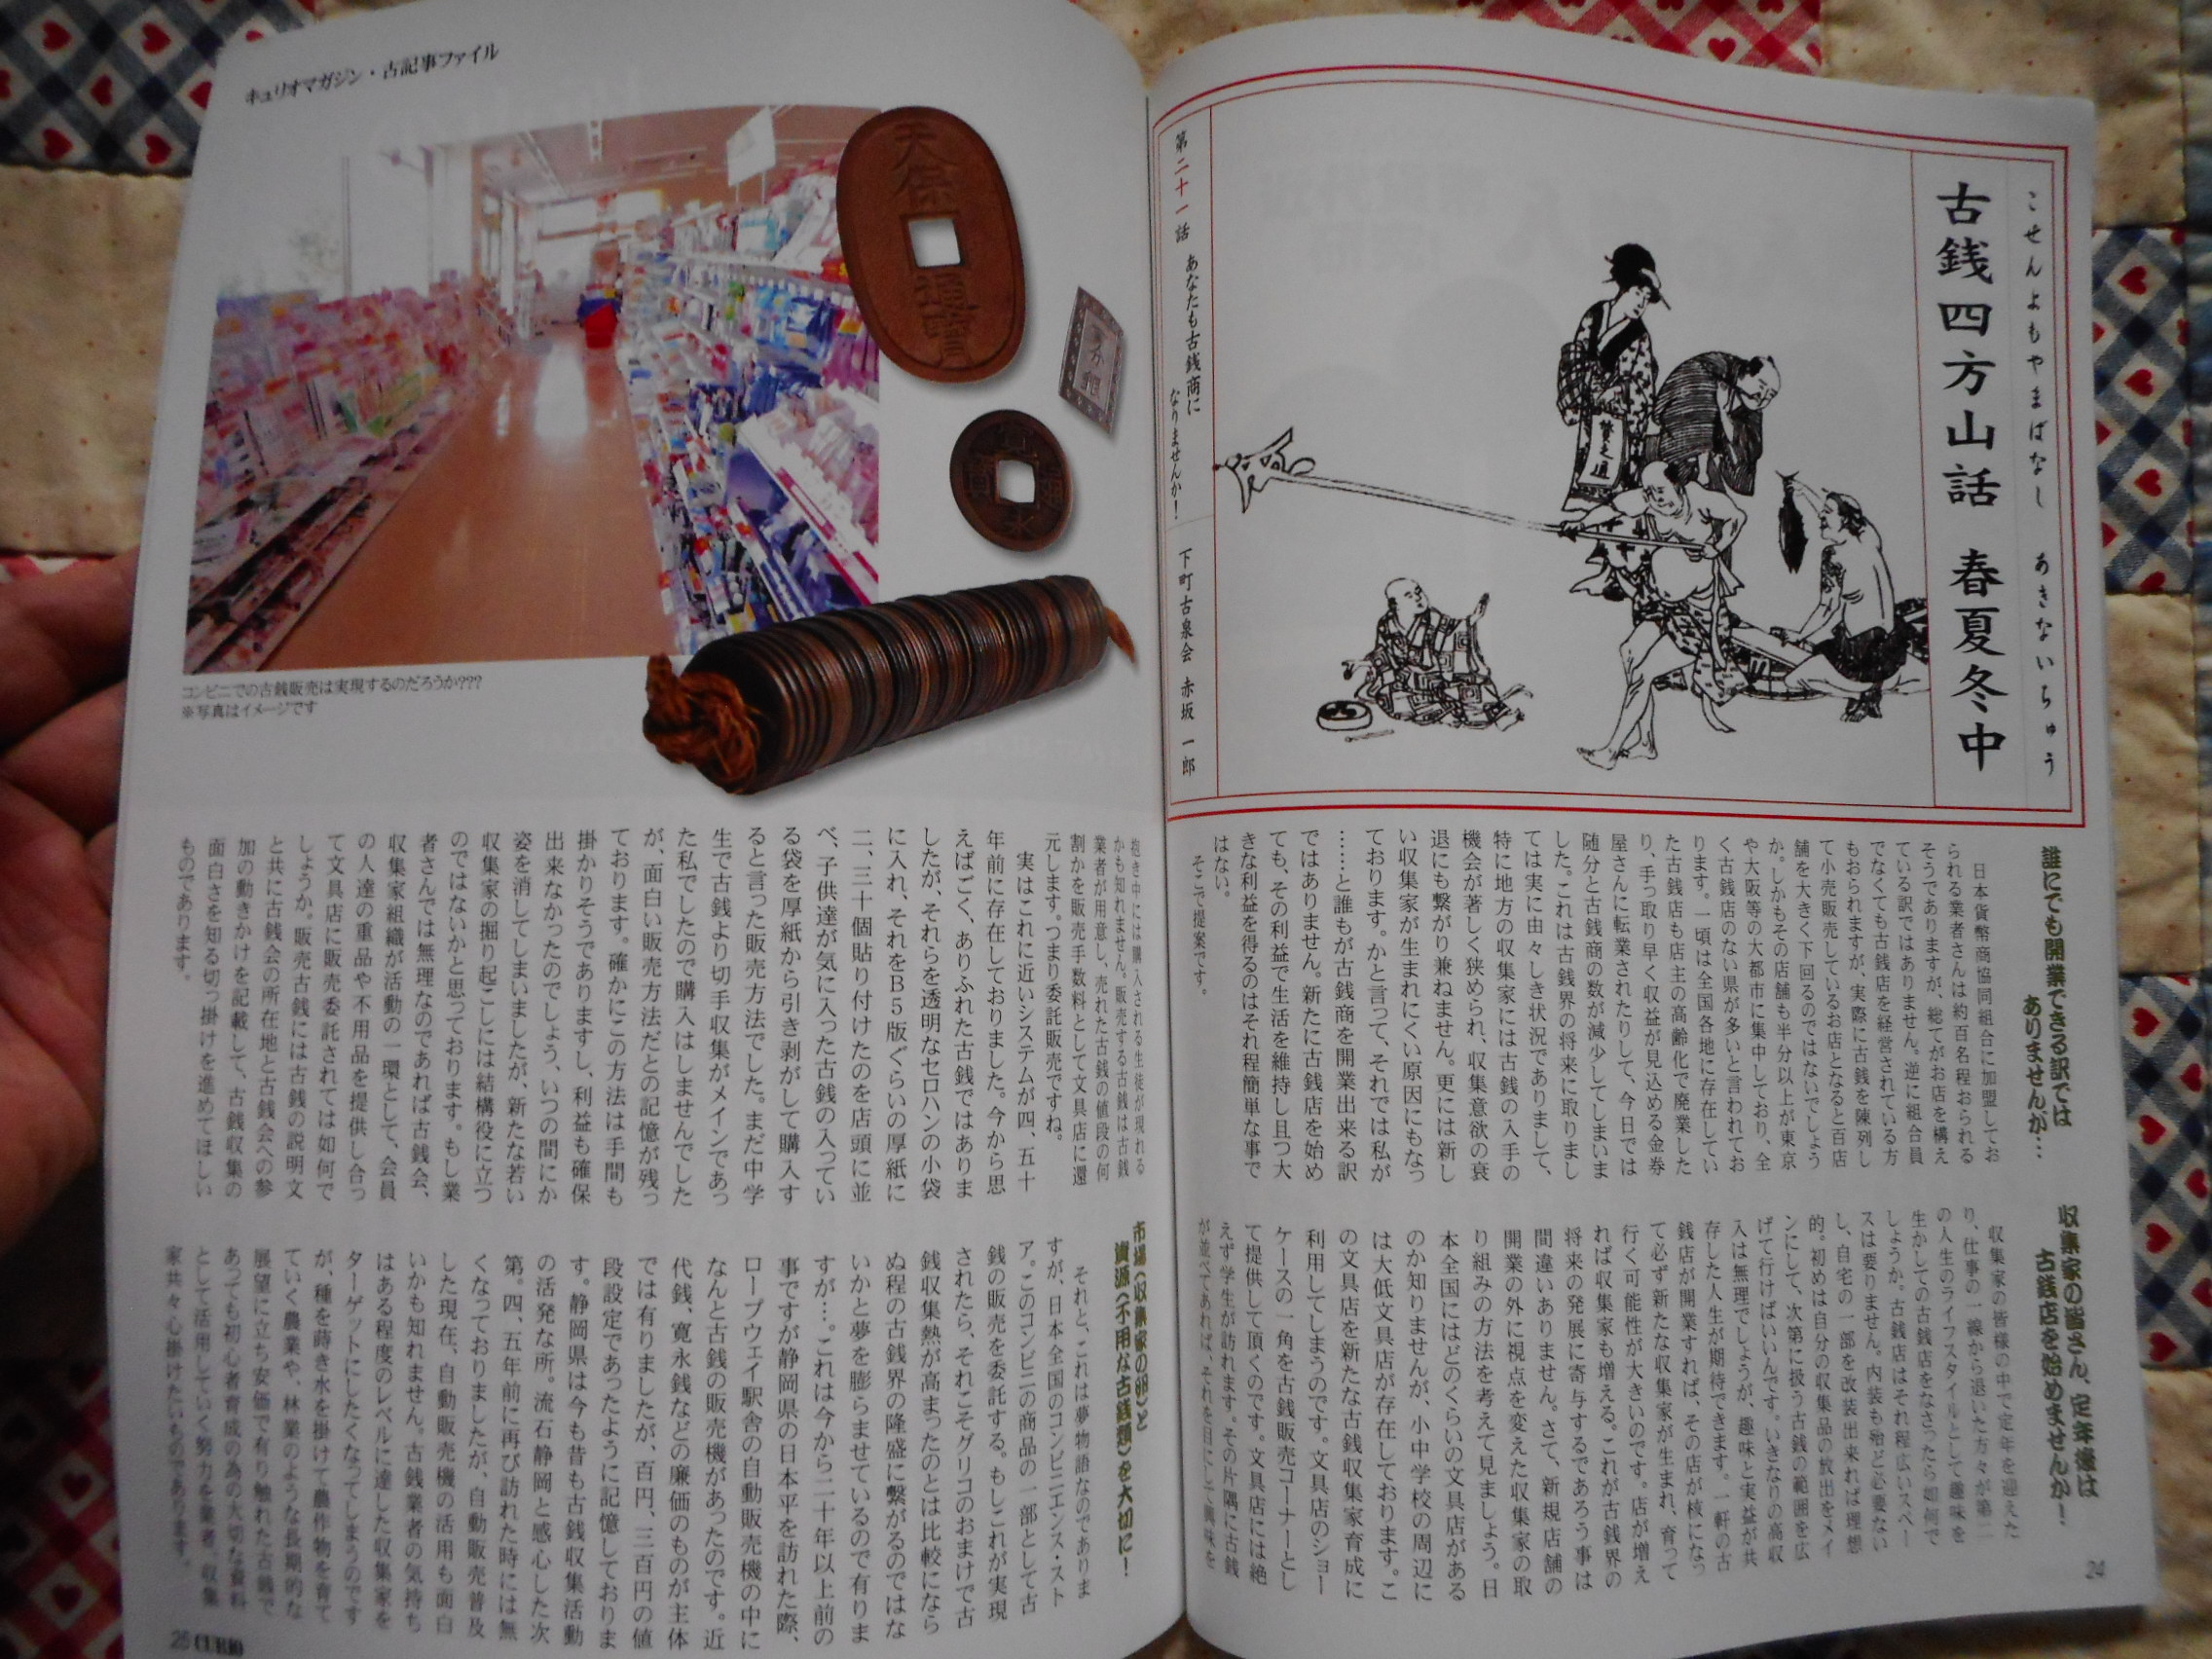 こせんよもやまばなし あきないちゅう
古銭四方山話 春夏冬中
賛之進
第二十一話 あなたも古銭商に
なりませんか!
下町古泉会 赤坂 一郎
誰にでも開業できる訳では
ありませんが…
日本貨幣商協同組合に加盟してお
られる業者さんは約百名程おられる
そうでありますが、総てがお店を構え
ている訳ではありません。逆に組合員
でなくても古銭店を経営されている方
もおられますが、実際に古銭を陳列し
て小売販売しているお店となると百店
舗を大きく下回るのではないでしょう
か。しかもその店舗も半分以上が東京
や大阪等の大都市に集中しており、全
く古銭店のない県が多いと言われてお
ります。一頃は全国各地に存在してい
た古銭店も店主の高齢化で廃業した
り、手っ取り早く収益が見込める金券
屋さんに転業されたりして、今日では
随分と古銭商の数が減少してしまいま
した。これは古銭界の将来に取りまし
ては実に由々しき状況でありまして、
特に地方の収集家には古銭の入手の
機会が著しく狭められ、収集意欲の衰
退にも繋がり兼ねません。更には新し
い収集家が生まれにくい原因にもなっ
ております。かと言って、それでは私が
……と誰もが古銭商を開業出来る訳
ではありません。新たに古銭店を始め
ても、その利益で生活を維持し且つ大
きな利益を得るのはそれ程簡単な事で
はない。
そこで提案です。
収集家の皆さん、定年後は
古銭店を始めませんか!
収集家の皆様の中で定年を迎えた
り、仕事の一線から退いた方々が第二
の人生のライフスタイルとして趣味を
生かしての古銭店をなさったら如何で
しょうか。古銭店はそれ程広いスペー
スは要りません。内装も殆ど必要ない
し、自宅の一部を改装出来れば理想
的。初めは自分の収集品の放出をメイ
ンにして、次第に扱う古銭の範囲を広
げて行けばいいんです。いきなりの高収
入は無理でしょうが、趣味と実益が共
存した人生が期待できます。一軒の古
銭店が開業すれば、その店が核になっ
て必ず新たな収集家が生まれ、育って
行く可能性が大きいのです。店が増え
れば収集家も増える。これが古銭界の
将来の発展に寄与するであろう事は
間違いありません。さて、新規店舗の
開業の外に視点を変えた収集家の取
り組みの方法を考えて見ましょう。日
本全国にはどのくらいの文具店がある
のか知りませんが、小中学校の周辺に
は大低文具店が存在しております。こ
の文具店を新たな古銭収集家育成に
利用してしまうのです。文具店のショー
ケースの一角を古銭販売コーナーとし
て提供して頂くのです。文具店には絶
えず学生が訪れます。その片隅に古銭
が並べてあれば、それを目にして興味を
24
キュリオマガジン・古記事ファイル
天保
通寶
一分銀
寛永通寳
コンビニでの古銭販売は実現するのだろうか???
※写真はイメージです
抱き中には購入される生徒が現れる
かも知れません。販売する古銭は古銭
業者が用意し、売れた古銭の値段の何
割かを販売手数料として文具店に還
元します。つまり委託販売ですね。
実はこれに近いシステムが四、五十
年前に存在しておりました。今から思
えばごく、ありふれた古銭ではありま
したが、それらを透明なセロハンの小袋
に入れ、それをB5版ぐらいの厚紙に
二、三十個貼り付けたのを店頭に並
べ、子供達が気に入った古銭の入ってい
る袋を厚紙から引き剥がして購入す
ると言った販売方法でした。まだ中学
生で古銭より切手収集がメインであっ
た私でしたので購入はしませんでした
が、面白い販売方法だとの記憶が残っ
ております。確かにこの方法は手間も
掛かりそうでありますし、利益も確保
出来なかったのでしょう、いつの間にか
姿を消してしまいましたが、新たな若い
収集家の掘り起こしには結構役に立つ
のではないかと思っております。もし業
者さんでは無理なのであれば古銭会、
収集家組織が活動の一環として、会員
の人達の重品や不用品を提供し合っ
て文具店に販売委託されては如何で
しょうか。販売古銭には古銭の説明文
と共に古銭会の所在地と古銭会への参
加の動きかけを記載して、古銭収集の
面白さを知る切っ掛けを進めてほしい
ものであります。
市場(収集家の卵)と
資源(不用な古銭類)を大切に!
それと、これは夢物語なのでありま
すが、日本全国のコンビニエンス・スト
ア。このコンビニの商品の一部として古
銭の販売を委託する。もしこれが実現
されたら、それこそグリコのおまけで古
銭収集熱が高まったのとは比較になら
ぬ程の古銭界の隆盛に繋がるのではな
いかと夢を膨らませているので有りま
すが…。これは今から二十年以上前の
事ですが静岡県の日本平を訪れた際、
ロープウェイ駅舎の自動販売機の中に
なんと古銭の販売機があったのです。近
代銭、寛永銭などの廉価のものが主体
では有りましたが、百円、三百円の値
段設定であったように記憶しておりま
す。静岡県は今も昔も古銭収集活動
の活発な所。流石静岡と感心した次
第。四、五年前に再び訪れた時には無
くなっておりましたが、自動販売普及
した現在、自動販売機の活用も面白
いかも知れません。古銭業者の気持ち
はある程度のレベルに達した収集家を
ターゲットにしたくなってしまうのです
が、種を蒔き水を掛けて農作物を育て
ていく農業や、林業のような長期的な
展望に立ち安価で有り触れた古銭で
あっても初心者育成の為の大切な資料
として活用していく努力を業者、収集
家共々心掛けたいものであります。
25 CURIO